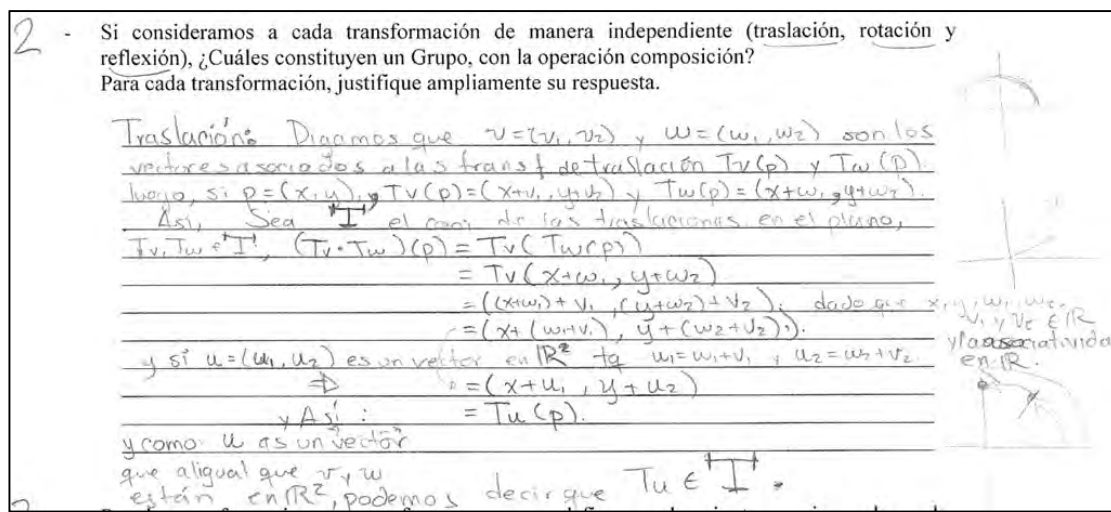 2 - Si consideramos a cada transformación de manera independiente (traslación, rotación y
reflexión), ¿Cuáles constituyen un Grupo, con la operación composición?
Para cada transformación, justifique ampliamente su respuesta.
Traslación: Digamos que v=(v₁, v₂) y w=(w₁, w₂) son los
vectores asociados a las transf de traslación Tv(p) y Tw(p).
luego, si p=(x, y), y Tv(p)=(x+v₁, y+v₂) y Tw(p)=(x+w₁, y+w₂).
Así, Sea "I" el conj de las traslaciones en el plano,
Tv, Tw ∈ "I", (Tv∘Tw)(p) = Tv(Tw(p))
= Tv(x+w₁, y+w₂)
= ((x+w₁)+v₁, (y+w₂)+v₂); dado que x, y, w₁, w₂,
v₁ y v₂ ∈ ℝ
= (x+(w₁+v₁), y+(w₂+v₂)).
y la asociatividad
en ℝ.
y si u=(u₁, u₂) es un vector en ℝ² tq u₁=w₁+v₁ y u₂=w₂+v₂
⇒ = (x+u₁, y+u₂)
y Así: = Tu(p).
y como u as un vector
que al igual que v y w
están en ℝ², podemos decir que Tu ∈ "I".